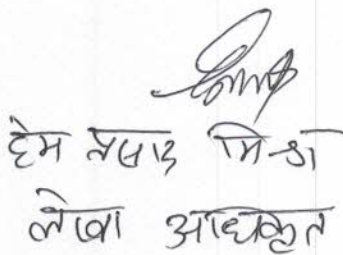 हेम प्रसाद मिश्र
लेखा अधिकृत